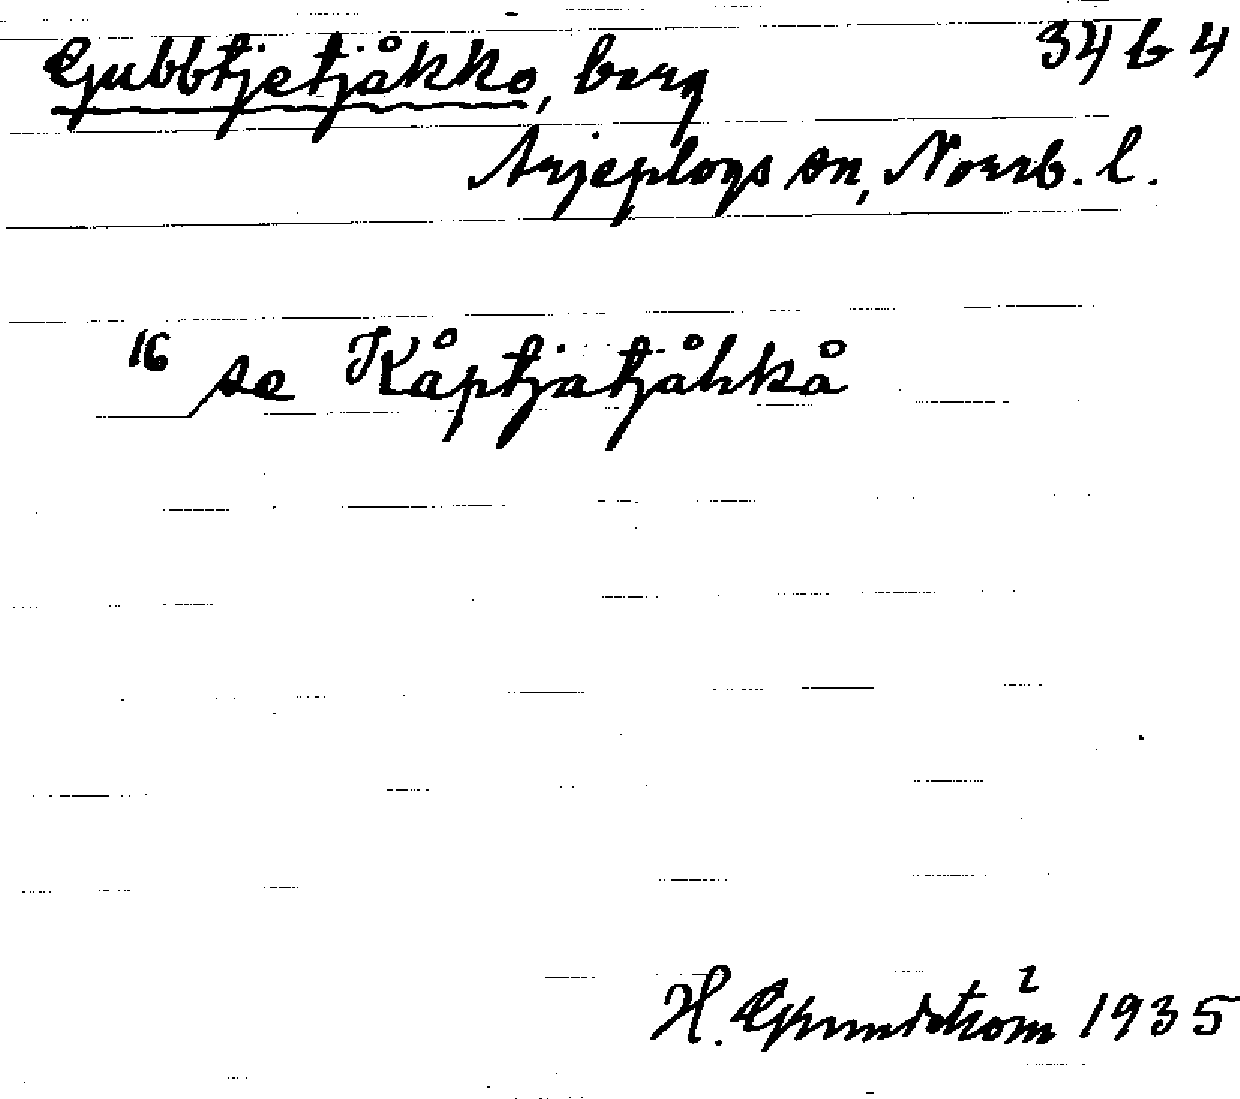 Gjubbtjetjåkko, berg 34 b 4
Arjeplogs sn, Norrb. l.
16 se Kåptjåtjåhkå
H. Grundström 1935